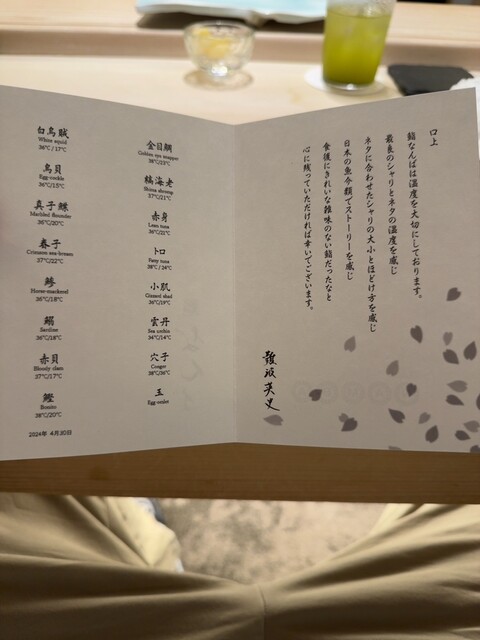 白烏賊
White squid
36℃/17℃
鳥貝
Egg cockle
36℃/15℃
真子鰈
Marbled flounder
36℃/20℃
春子
Crimson sea-bream
37℃/22℃
鯵
Horse-mackerel
36℃/18℃
鰯
Sardine
36℃/18℃
赤貝
Bloody clam
37℃/17℃
鰹
Bonito
38℃/20℃
2024年 4月30日
金目鯛
Golden eye snapper
38℃/23℃
縞海老
Shima shrimp
37℃/21℃
赤身
Lean tuna
36℃/21℃
トロ
Fatty tuna
38℃/24℃
小肌
Gizzard shad
36℃/19℃
雲丹
Sea urchin
34℃/14℃
穴子
Conger
38℃/36℃
玉
Egg omlet
口上
鮨なんばは温度を大切にしております。
最良のシャリとネタの温度を感じ
ネタに合わせたシャリの大小とほどけ方を感じ
日本の魚介類でストーリーを感じ
食後にきれいな雑味のない鮨だったなと
心に残っていただければ幸いでございます。
難波英史